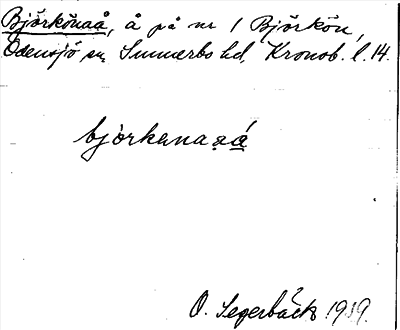 Björkönaå, å på nr 1 Björkön,
Odensjö sn, Sunnerbo hd, Kronob. l. 14.
björkanaaá
O. Segerbäck 1919.